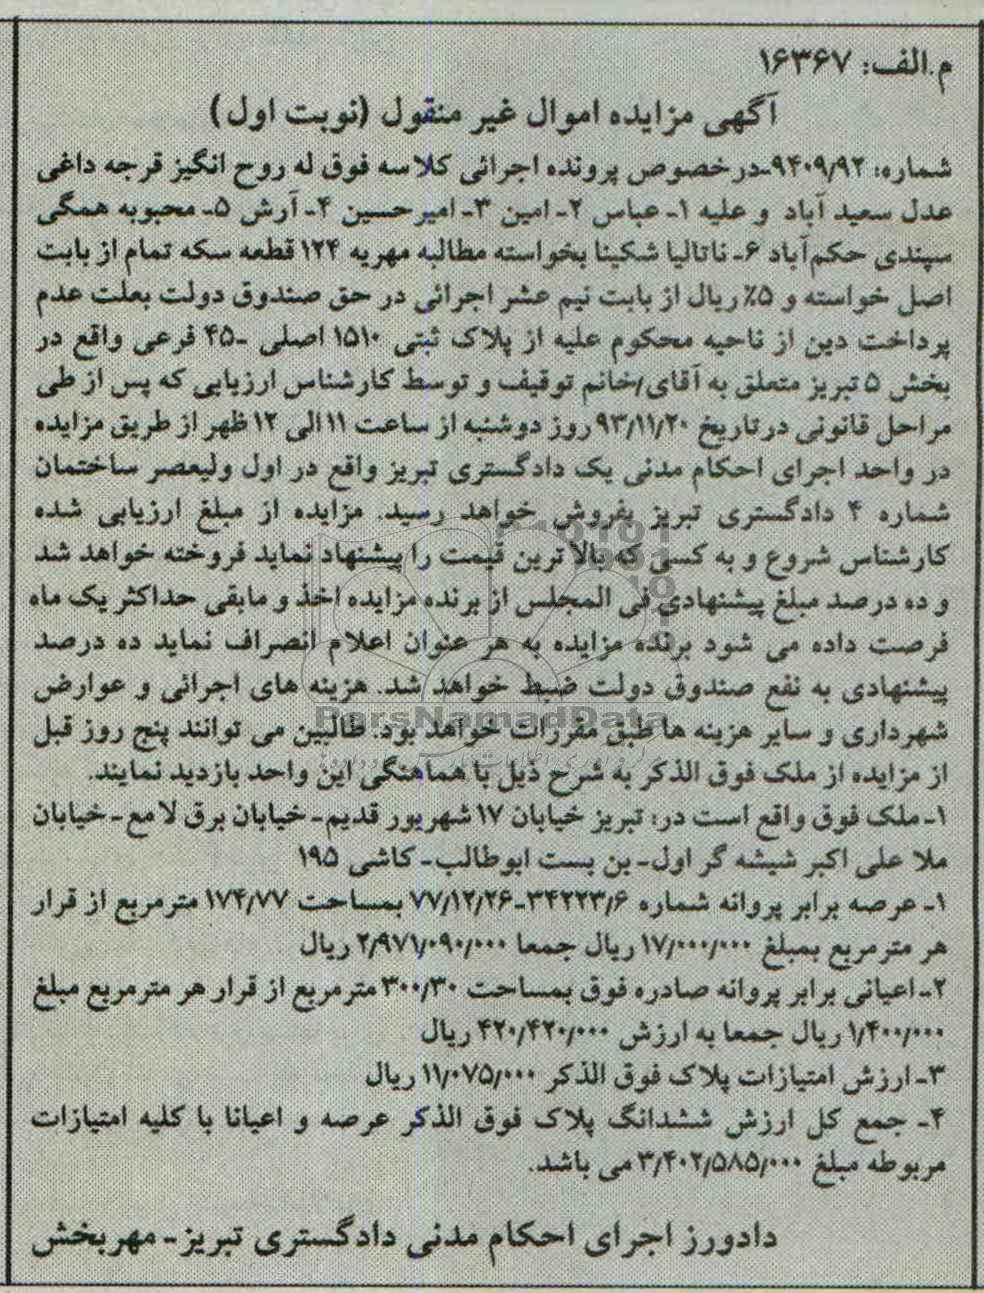 م.الف: ۱۶۳۶۷
آگهی مزایده اموال غیر منقول (نوبت اول)
شماره: ۹۴۰۹/۹۲-درخصوص پرونده اجرائی کلاسه فوق له روح انگیز قرجه داغی
عدل سعید آباد و علیه ۱- عباس ۲- امین ۳- امیرحسین ۴- آرش ۵- محبوبه همگی
سپندی حکم‌آباد ۶- ناتالیا شکینا بخواسته مطالبه مهریه ۱۲۴ قطعه سکه تمام از بابت
اصل خواسته و ۵٪ ریال از بابت نیم عشر اجرائی در حق صندوق دولت بعلت عدم
پرداخت دین از ناحیه محکوم علیه از پلاک ثبتی ۱۵۱۰ اصلی -۴۵ فرعی واقع در
بخش ۵ تبریز متعلق به آقای/خانم توقیف و توسط کارشناس ارزیابی که پس از طی
مراحل قانونی درتاریخ ۹۳/۱۱/۲۰ روز دوشنبه از ساعت ۱۱ الی ۱۲ ظهر از طریق مزایده
در واحد اجرای احکام مدنی یک دادگستری تبریز واقع در اول ولیعصر ساختمان
شماره ۴ دادگستری تبریز بفروش خواهد رسید. مزایده از مبلغ ارزیابی شده
کارشناس شروع و به کسی که بالا ترین قیمت را پیشنهاد نماید فروخته خواهد شد
و ده درصد مبلغ پیشنهادی فی المجلس از برنده مزایده اخذ و مابقی حداکثر یک ماه
فرصت داده می شود برنده مزایده به هر عنوان اعلام انصراف نماید ده درصد
پیشنهادی به نفع صندوق دولت ضبط خواهد شد. هزینه های اجرائی و عوارض
شهرداری و سایر هزینه ها طبق مقررات خواهد بود. طالبین می توانند پنج روز قبل
از مزایده از ملک فوق الذکر به شرح ذیل با هماهنگی این واحد بازدید نمایند.
۱- ملک فوق واقع است در: تبریز خیابان ۱۷ شهریور قدیم- خیابان برق لامع- خیابان
ملا علی اکبر شیشه گر اول- بن بست ابوطالب- کاشی ۱۹۵
۱- عرصه برابر پروانه شماره ۳۴۲۲۳/۶-۷۷/۱۲/۲۶ بمساحت ۱۷۴/۷۷ مترمربع از قرار
هر مترمربع بمبلغ ۱۷/۰۰۰/۰۰۰ ریال جمعا ۲/۹۷۱/۰۹۰/۰۰۰ ریال
۲- اعیانی برابر پروانه صادره فوق بمساحت ۳۰۰/۳۰ مترمربع از قرار هر مترمربع مبلغ
۱/۴۰۰/۰۰۰ ریال جمعا به ارزش ۴۲۰/۴۲۰/۰۰۰ ریال
۳- ارزش امتیازات پلاک فوق الذکر ۱۱/۰۷۵/۰۰۰ ریال
۴- جمع کل ارزش ششدانگ پلاک فوق الذکر عرصه و اعیانا با کلیه امتیازات
مربوطه مبلغ ۳/۴۰۲/۵۸۵/۰۰۰ می باشد.
دادورز اجرای احکام مدنی دادگستری تبریز- مهربخش
ParsNamadData